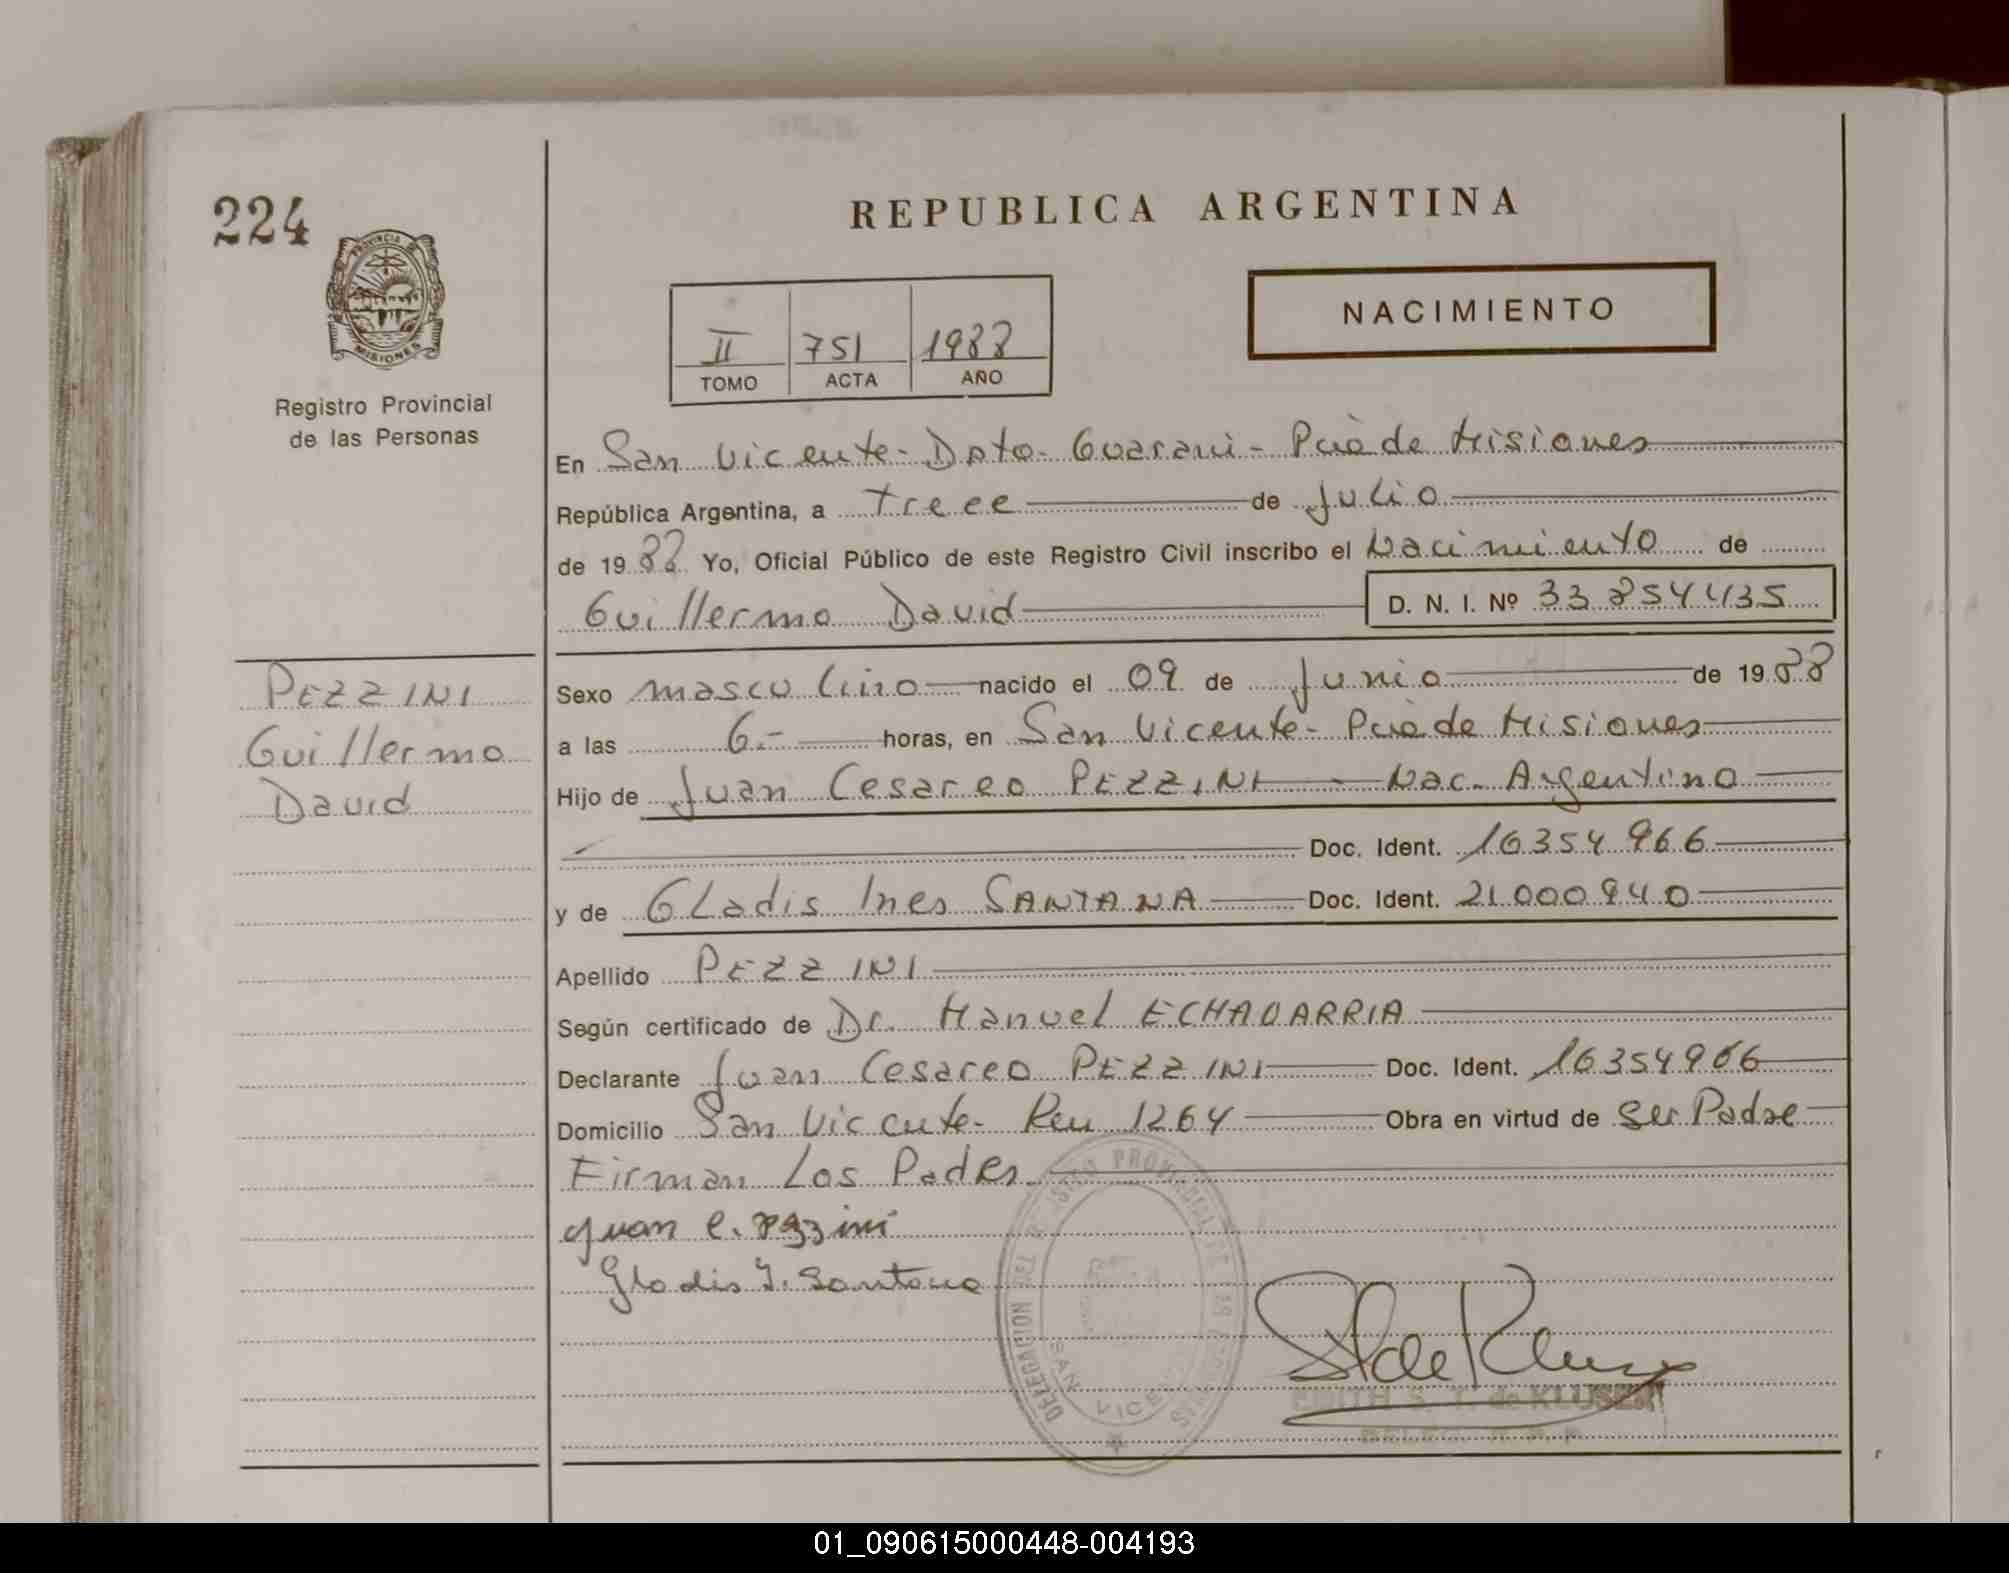 224
PROVINCIA DE
MISIONES
Registro Provincial
de las Personas
REPUBLICA ARGENTINA
II 751 1988
TOMO ACTA AÑO
NACIMIENTO
En San Vicente - Dpto - Guarani - Pcia de Misiones
República Argentina, a trece de Julio
de 1988 Yo, Oficial Público de este Registro Civil inscribo el Nacimiento de
Guillermo David D. N. I. Nº 33 854 435
PEZZINI
Guillermo
David
Sexo masculino nacido el 09 de Junio de 1988
a las 6.- horas, en San Vicente - Pcia de Misiones
Hijo de Juan Cesareo PEZZINI - Nac. Argentino
Doc. Ident. 16354966
y de Gladis Ines SANTANA Doc. Ident. 21.000940
Apellido PEZZINI
Según certificado de Dr. Manuel ECHAVARRIA
Declarante Juan Cesareo PEZZINI Doc. Ident. 16354966
Domicilio San Vicente - Km 1264 Obra en virtud de ser Padre
Firman Los Padres
Juan C. Pezzini
Gladis I. Santana
DELEGACION
SAN VICENTE
EDITH S. T. de KLUSEN
01_090615000448-004193